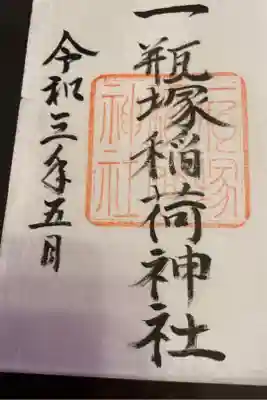 一瓶塚稲荷神社
令和三年五月